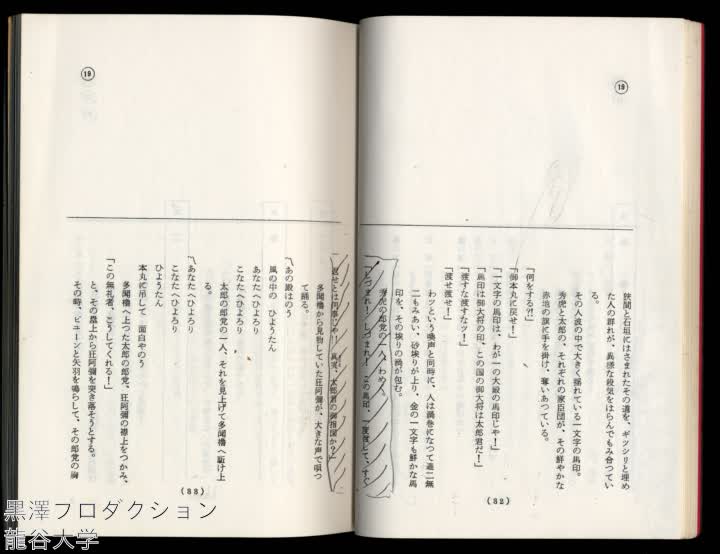 ⑲
狭間と石垣にはさまれたその道を、ギッシリと埋め
た人の群れが、異様な殺気をはらんでもみ合ってい
る。
その人波の中で大きく揺れている一文字の馬印。
秀虎と太郎の、それぞれの家臣団が、その鮮やかな
赤地の旗に手を掛け、奪いあっている。
「何をする?!」
「御本丸に戻せ!」
「一文字の馬印は、わが一の大殿の馬印じゃ!」
「馬印は御大将の印、この国の御大将は太郎君だ!」
「渡すな渡すなッ!」
「渡せ渡せ!」
わッという喚声と同時に、人は渦巻になって遮二無
二もみあい、砂埃りが上り、金の一文字も鮮かな馬
印を、その埃りの渦が包む。
秀虎の郎党の一人、わめく。
「しづまれ! しづまれ! この馬印、一度渡して、すぐ
(32)
⑲
返せとは何事じゃ! 真実、太郎君の御指図か?」
多聞櫓から見物していた狂阿彌が、大きな声で唄っ
て踊る。
〽あの殿はのう
風の中の ひょうたん
あなたへひょろり
こなたへひょろり
太郎の郎党の一人、それを見上げて多聞櫓へ駈け上
る。
〽あなたへひょろり
こなたへひょろり
ひょうたん
本丸に吊して 面白やのう
多聞櫓へ上つた太郎の郎党、狂阿彌の襟上をつかみ、
「この無礼者、こうしてくれる!」
と、その櫓上から狂阿彌を突き落そうとする。
その時、ピューンと矢羽を鳴らして、その郎党の胸
(33)
黒澤プロダクション
龍谷大学